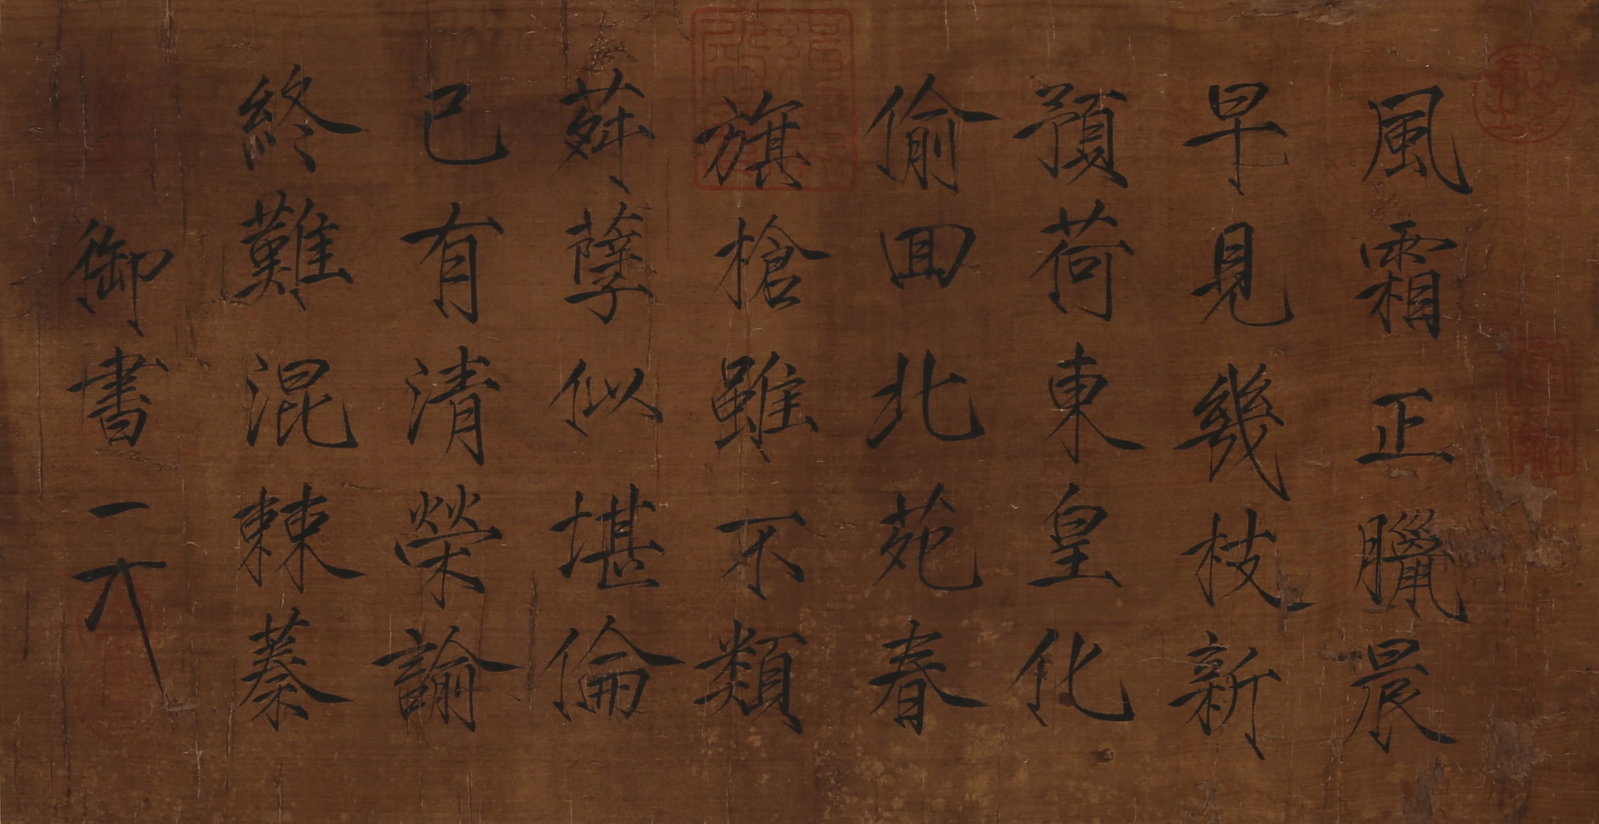 風霜正臘晨
早見幾枝新
預荷東皇化
偷回北苑春
旗槍雖不類
荈蘖似堪倫
已有清榮諭
終難混棘蓁
御書